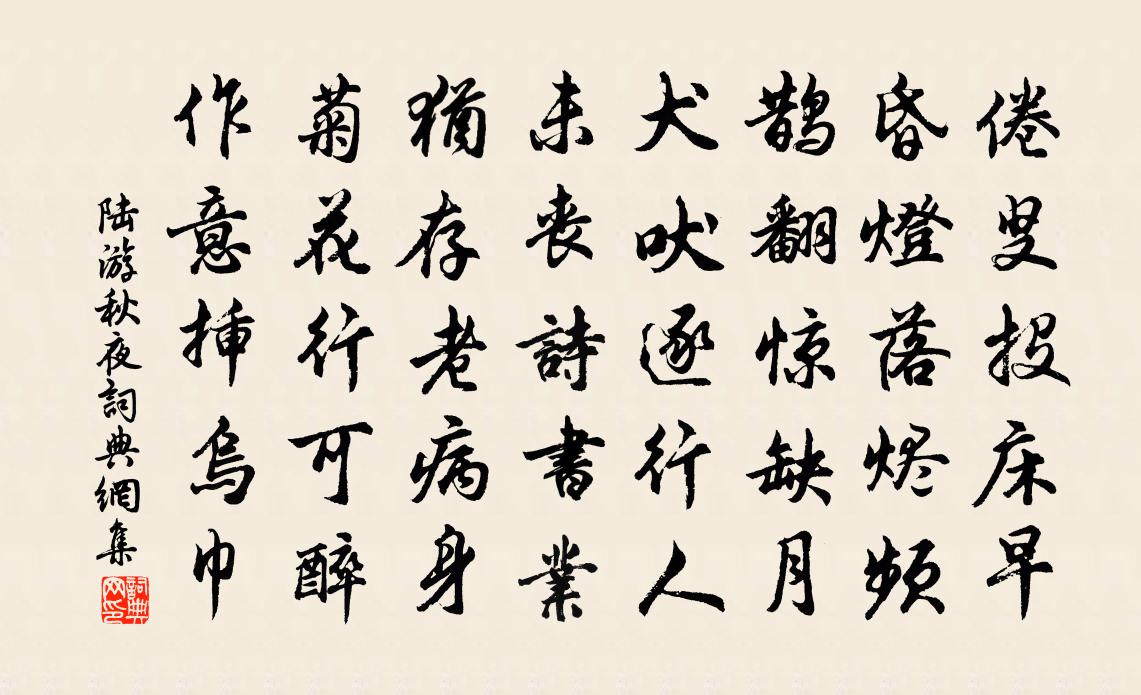 倦叟投床早
昏燈落烬频
鹊翻惊缺月
犬吠逐行人
未丧詩書業
猶存老病身
菊花行可醉
作意挿烏巾
陆游秋夜詞典網集
詞典网印